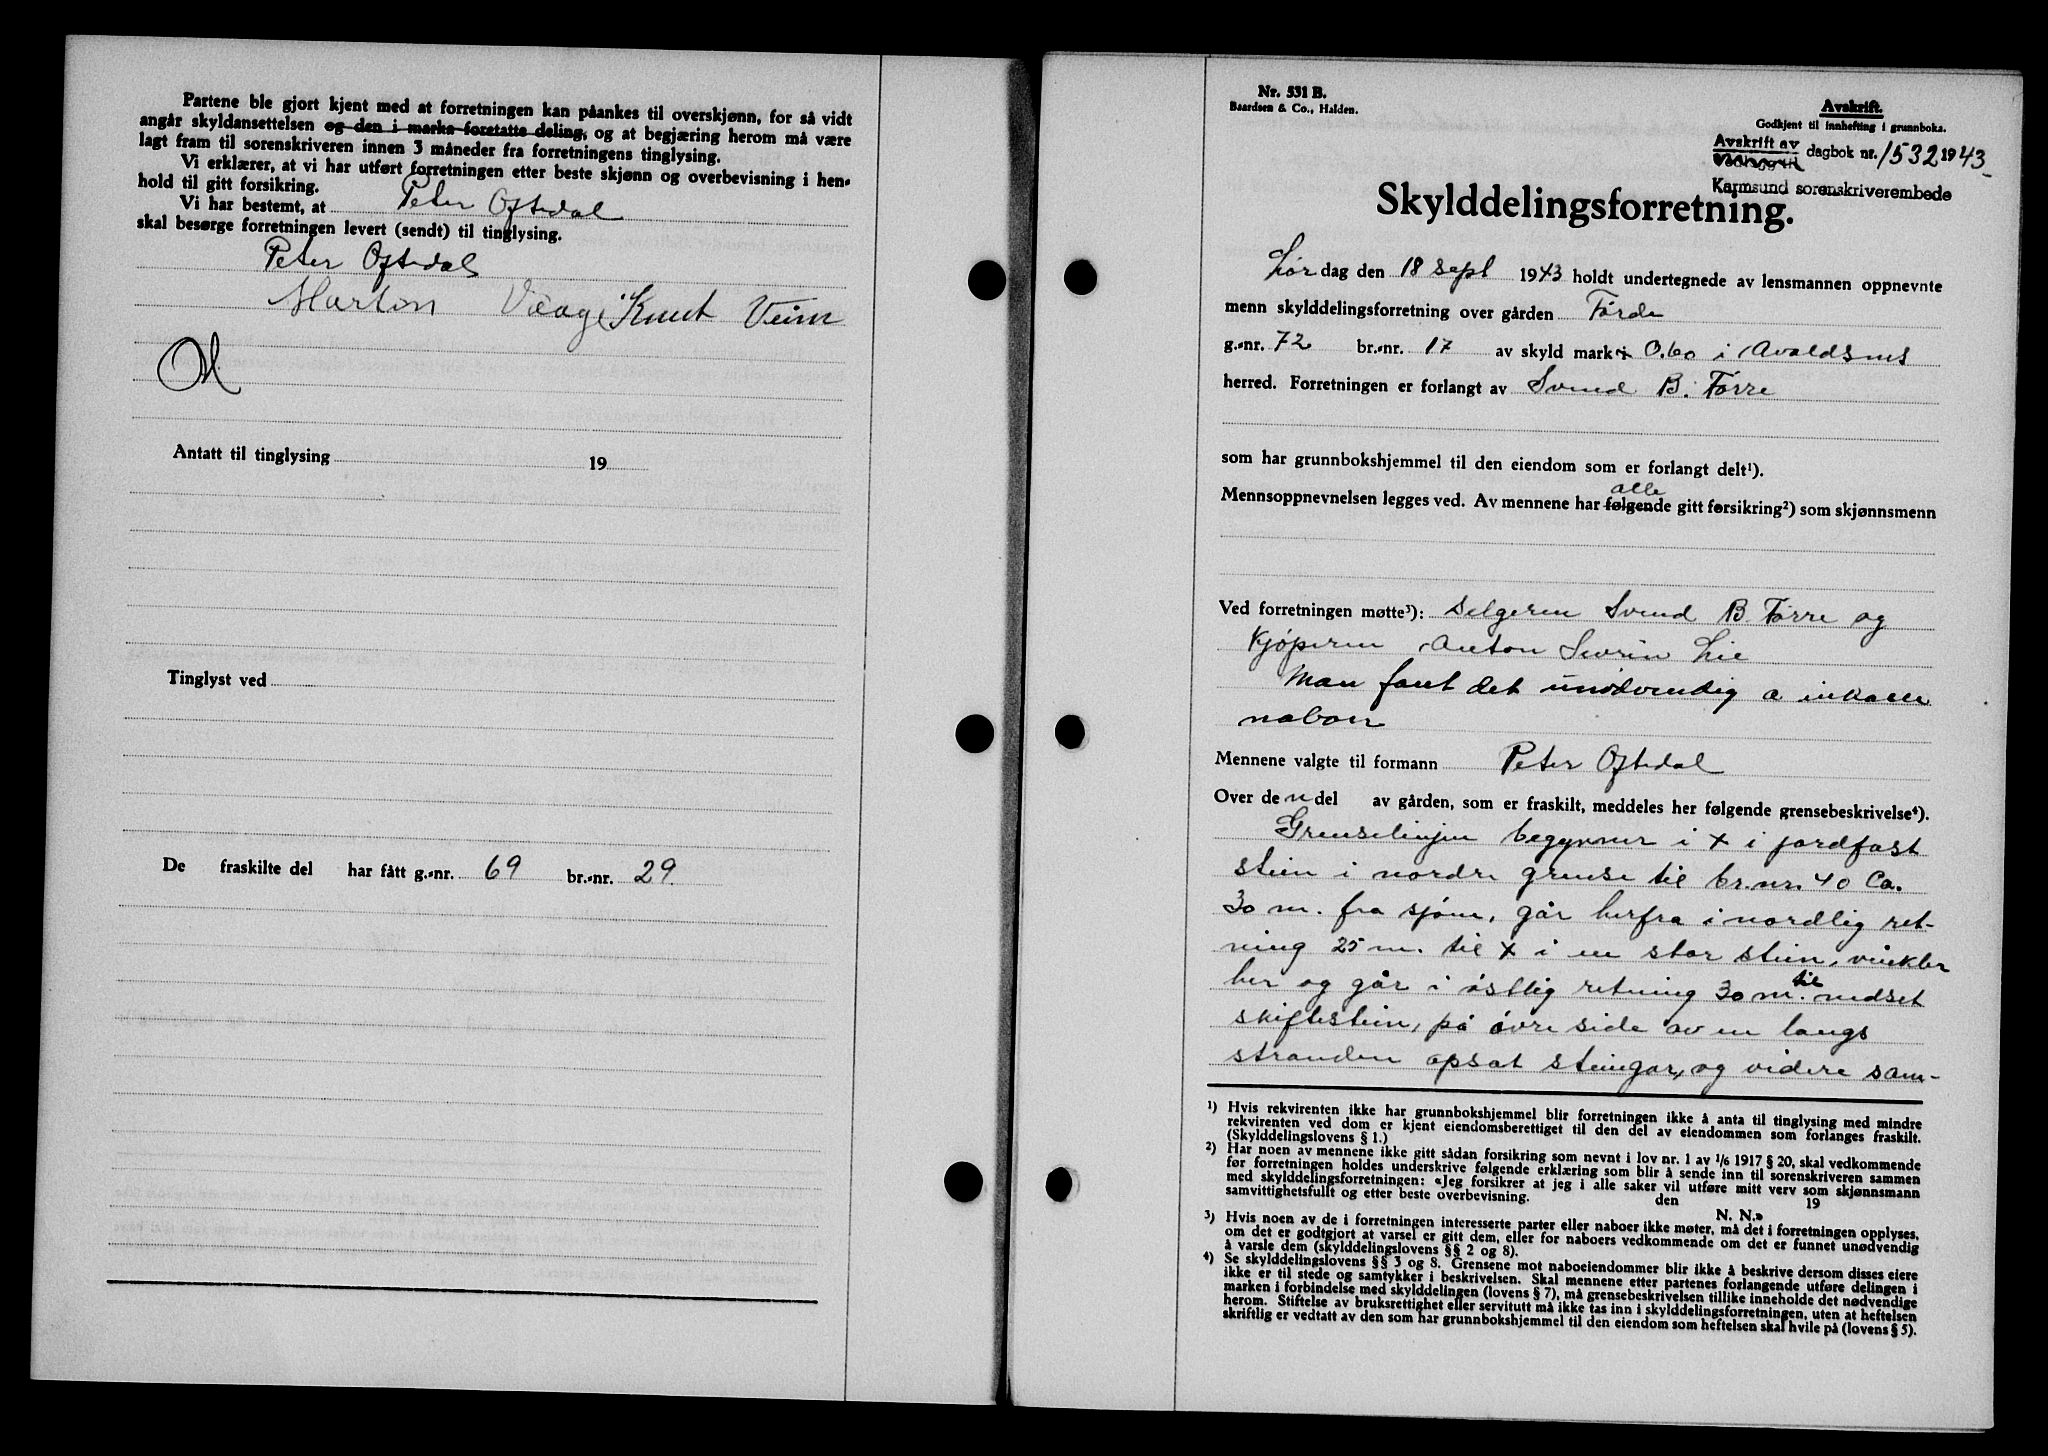 Partene ble gjort kjent med at forretningen kan påankes til overskjønn, for så vidt
angår skyldansettelsen og den i marka foretatte deling, og at begjæring herom må være
lagt fram til sorenskriveren innen 3 måneder fra forretningens tinglysing.
Vi erklærer, at vi har utført forretningen etter beste skjønn og overbevisning i hen-
hold til gitt forsikring.
Vi har bestemt, at Peter Oftedal
skal besørge forretningen levert (sendt) til tinglysing.
Peter Oftedal
Marton Vaage Knut Veim
Antatt til tinglysing 19
Tinglyst ved
De fraskilte del har fått g.-nr. 69 br.-nr. 29.
Nr. 531 B.
Baardsen & Co., Halden.
Avskrift.
Godkjent til innhefting i grunnboka.
Avskrift av
dagbok nr. 1532 1943
Karmsund sorenskriverembede
Skylddelingsforretning.
Lør dag den 18 sept 1943 holdt undertegnede av lensmannen oppnevnte
menn skylddelingsforretning over gården Førde
g.-nr. 72 br.-nr. 17 av skyld mark 0.60 i Avaldsnes
herred. Forretningen er forlangt av Svend B. Førre
som har grunnbokshjemmel til den eiendom som er forlangt delt¹).
alle
Mennsoppnevnelsen legges ved. Av mennene har følgende gitt forsikring²) som skjønnsmenn
Ved forretningen møtte³): Selgeren Svend B. Førre og
Kjøperen Anton Severin Lie
Man fant det unødvendig a inkalle
naboer
Mennene valgte til formann Peter Oftedal
Over de n del av gården, som er fraskilt, meddeles her følgende grensebeskrivelse⁴).
Grenselinjen begynner i + i jordfast
stein i nordre grense til br.nr. 40 Ca.
30 m. fra sjøen, går herfra i nordlig ret-
ning 25 m. til + i en stor stein, vinkler
her og går i østlig retning 30 m. til nedset
skiftestein, på øvre side av en langs
stranden opsat steingar, og videre sam-
¹) Hvis rekvirenten ikke har grunnbokshjemmel blir forretningen ikke å anta til tinglysing med mindre
rekvirenten ved dom er kjent eiendomsberettiget til den del av eiendommen som forlanges fraskilt.
(Skylddelingslovens § 1.)
²) Har noen av mennene ikke gitt sådan forsikring som nevnt i lov nr. 1 av 1/6 1917 § 20, skal vedkommende
før forretningen holdes underskrive følgende erklæring som blir å sende inn til sorenskriveren sammen
med skylddelingsforretningen: «Jeg forsikrer at jeg i alle saker vil utføre mitt verv som skjønnsmann
samvittighetsfullt og etter beste overbevisning. den 19
N. N.»
³) Hvis noen av de i forretningen interesserte parter eller naboer ikke møter, må det i forretningen opplyses,
om det er godtgjort at varsel er gitt dem, eller for naboers vedkommende om det er funnet unødvendig
å varsle dem (skylddelingslovens §§ 2 og 8).
⁴) Se skylddelingslovens §§ 3 og 8. Grensene mot naboeiendommer blir ikke å beskrive dersom disses eiere
ikke er til stede og samtykker i beskrivelsen. Skal mennene etter partenes forlangende utføre delingen i
marken i forbindelse med skylddelingen (lovens § 7), må grensebeskrivelsen tillike inneholde det nødvendige
herom. Stiftelse av bruksrettighet eller servitutt må ikke tas inn i skylddelingsforretningen, uten at heftelsen
skriftlig er vedtatt av den som har grunnbokshjemmel til den eiendom som heftelsen skal hvile på (lovens § 5).